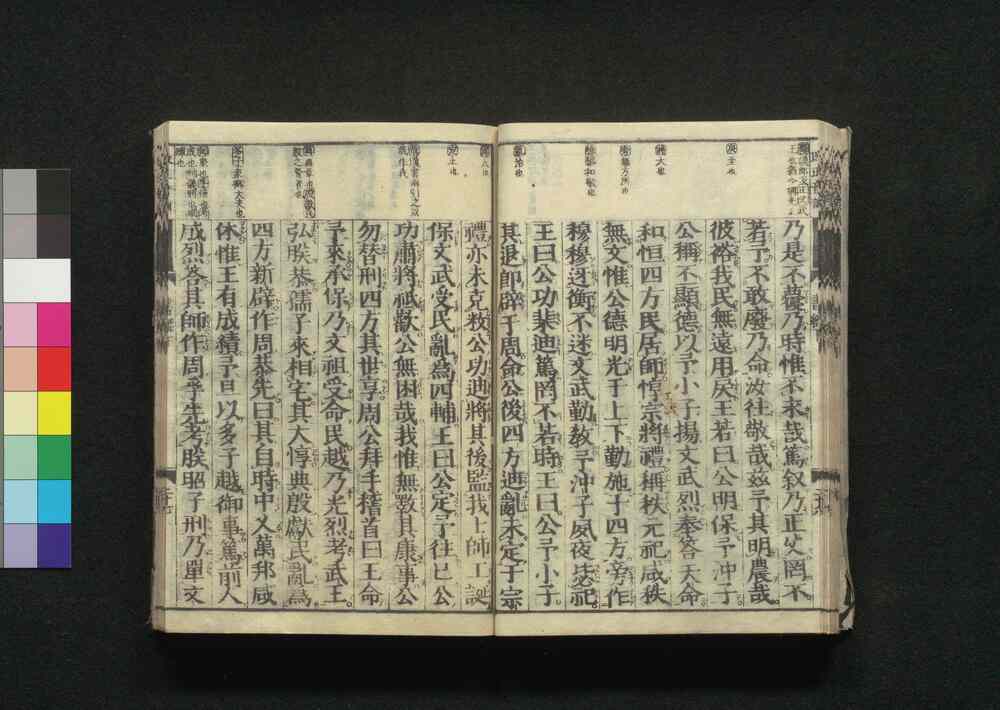 乃是不蘉乃時惟不永哉篤叙乃正父罔不
若予不敢廢乃命汝往敬哉兹予其明農哉
彼裕我民無遠用戾王若曰公明保予冲子
公稱丕顯德以予小子揚文武烈奉答天命
和恒四方民居師惇宗將禮稱秩元祀咸秩
無文惟公德明光于上下勤施于四方旁作
穆穆迓衡不迷文武勤教予冲子夙夜毖祀
王曰公功棐迪篤罔不若時王曰公予小子
其退即辟于周命公後四方迪亂未定于宗
禮亦未克敉公功迪將其後監我士師工誕
保文武受民亂為四輔王曰公定予往已公
功肅將祗歡公無困哉我惟無斁其康事公
勿替刑四方其世享周公拜手稽首曰王命
予來承保乃文祖受命民越乃光烈考武王
弘朕恭孺子來相宅其大惇典殷獻民亂為
四方新辟作周恭先曰其自時中乂萬邦咸
休惟王有成績予旦以多子越御事篤前人
成烈答其師作周孚先考朕昭子刑乃單文